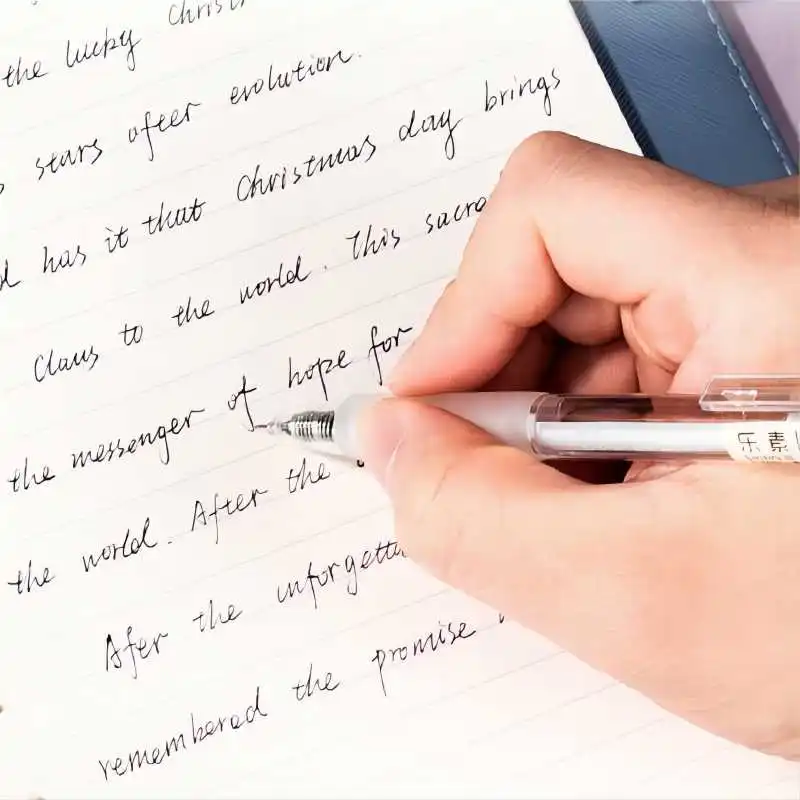 the lucky Christ
stars ofeer evolution.
has it that Christmas day brings
Claus to the world. This sacre
the messenger of hope for
the world. After the
Afer the unforgetta
remembered the promise
乐素